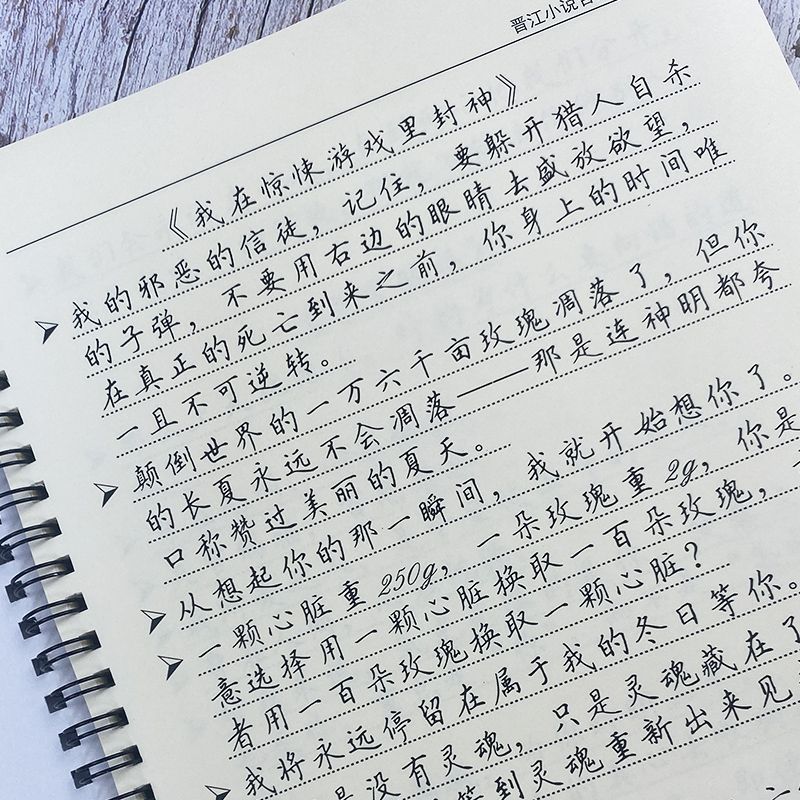 晋江小说
《我在惊悚游戏里封神》
我的邪恶的信徒，记住，要躲开猎人自杀
的子弹，不要用右边的眼睛去盛放欲望，
在真正的死亡到来之前，你身上的时间唯
一且不可逆转。
颠倒世界的一万六千亩玫瑰凋落了，但你
的长夏永远不会凋落——那是连神明都夸
口称赞过美丽的夏天。
从想起你的那一瞬间，我就开始想你了。
一颗心脏重250g，一朵玫瑰重2g，你是
意选择用一颗心脏换取一百朵玫瑰，
者用一百朵玫瑰换取一颗心脏？
我将永远停留在属于我的冬日等你。
是没有灵魂，只是灵魂藏在了
等到灵魂重新出来见